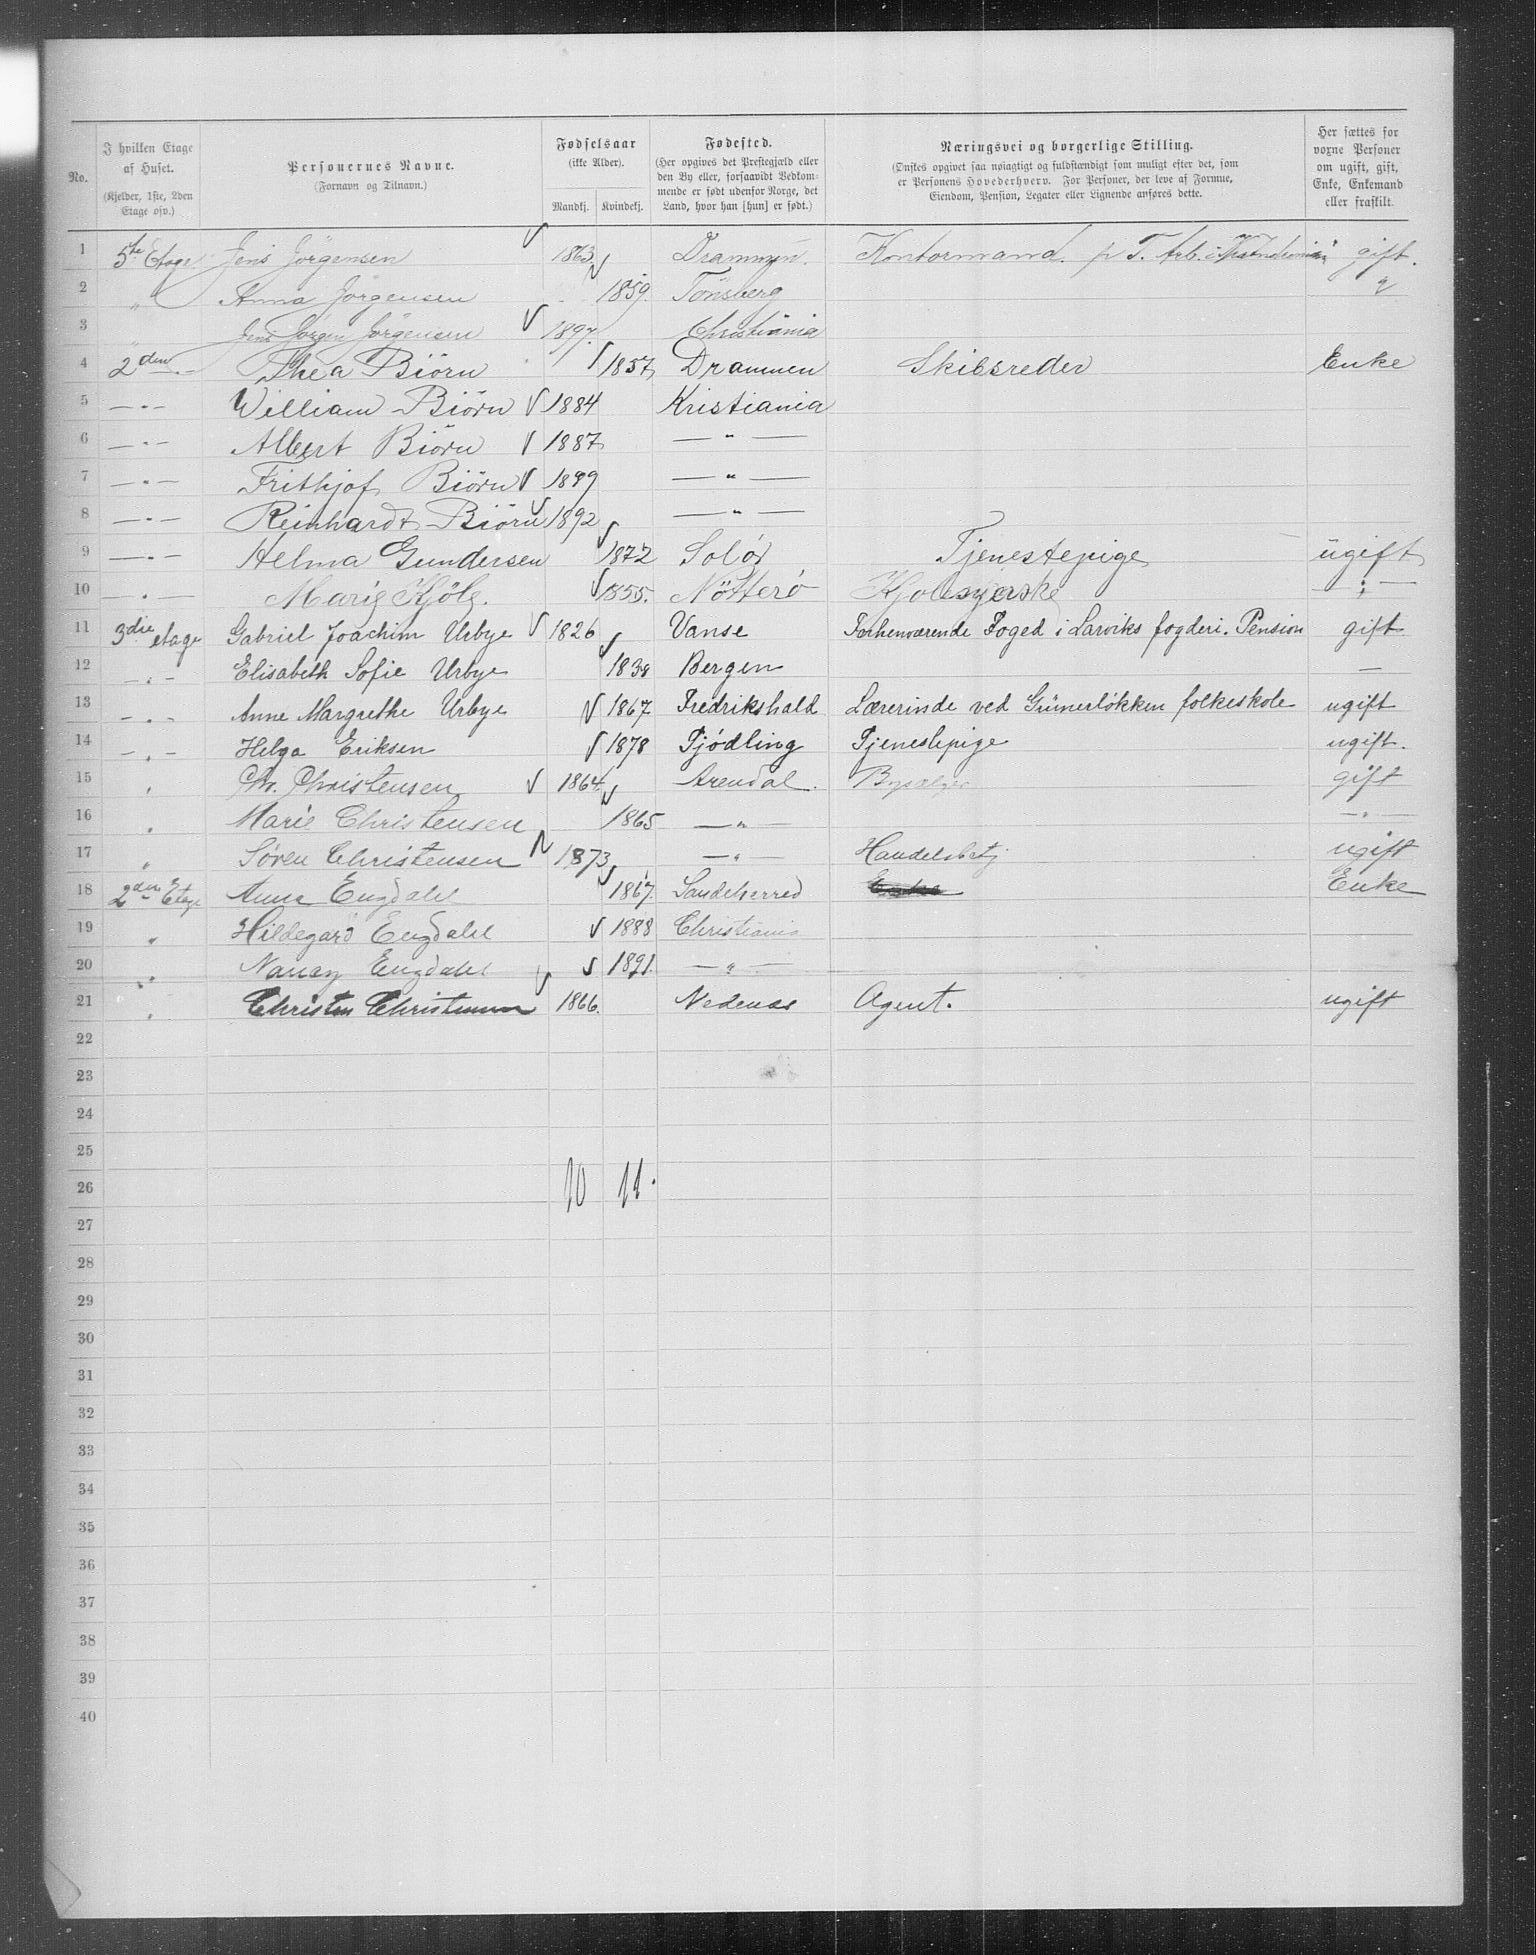 No. | I hvilken Etage af Huset. (Kjelder, 1ste, 2den Etage osv.) | Personernes Navne. (Fornavn og Tilnavn.) | Fødselsaar (ikke Alder). Mandkj. Kvindekj. | Fødested. (Her opgives det Prestegjæld eller den By eller, forsaavidt Vedkommende er født udenfor Norge, det Land, hvor han [hun] er født.) | Næringsvei og borgerlige Stilling. (Ønskes opgivet saa nøiagtigt og fuldstændigt som muligt efter det, som er Personens Hovederhverv. For Personer, der leve af Formue, Eiendom, Pension, Legater eller Lignende anføres dette.) | Her sættes for voxne Personer om ugift, gift, Enke, Enkemand eller fraskilt.
1 5te Etage Jens Jörgensen 1863 Drammen. Kontormand. p. T. Arb. i gift.
2 " Anna Jörgensen 1859. Tönsberg "
3 " Jens Jörgen Jörgensen 1897. Christiania
4 2den Thea Biörn 1857 Drammen Skibsreder Enke
5 — " — William Biörn 1884 Kristiania
6 — " — Albert Biörn 1887 — " —
7 — " — Frithjof Biörn 1889 — " —
8 — " — Reinhardt Biörn 1892 — " —
9 — " — Helma Gundersen 1872 Solör Tjenestepige ugift
10 — " — Marie 1855. Nötterö Kjolesyerske — " —
11 3die etage Gabriel Joachim Urbye 1826 Vanse Forhenværende Foged i Larviks fogderi. Pension gift
12 — " — Elisabeth Sofie Urbye 1838 Bergen —
13 — " — Anne Margrethe Urbye 1867 Fredrikshald Lærerinde ved Grünerløkken folkeskole ugift
14 — " — Helga Eriksen 1878 Tjödling Tjenestepige ugift.
15 " Chr. Christensen 1864 Arendal. gift
16 " Marie Christensen 1865 — " — — " —
17 " Søren Christensen 1873 — " — Handelsbetj ugift
18 2den Etage Anna Engdahl 1867. Sandeherred Enke Enke
19 " Hildegard Engdahl 1888 Christiania
20 " Nancy Engdahl 1891. — " —
21 " Christen Christensen 1866. Nedenæs Agent. ugift
22
23
24
25
26 10 11.
27
28
29
30
31
32
33
34
35
36
37
38
39
40